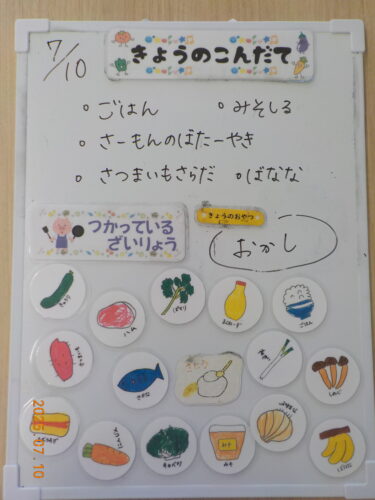 7/10
きょうのこんだて
。ごはん 。みそしる
。さーもんのばたーやき
。さつまいもさらだ 。ばなな
つかっている
ざいりょう
きょうのおやつ
おかし
きゅうり
はむ
ぱせり
まよねーず
ごはん
さかな
ねぎ
しめじ
にんじん
キャベツ
みそ
みそ
ばなな
2025.07.10